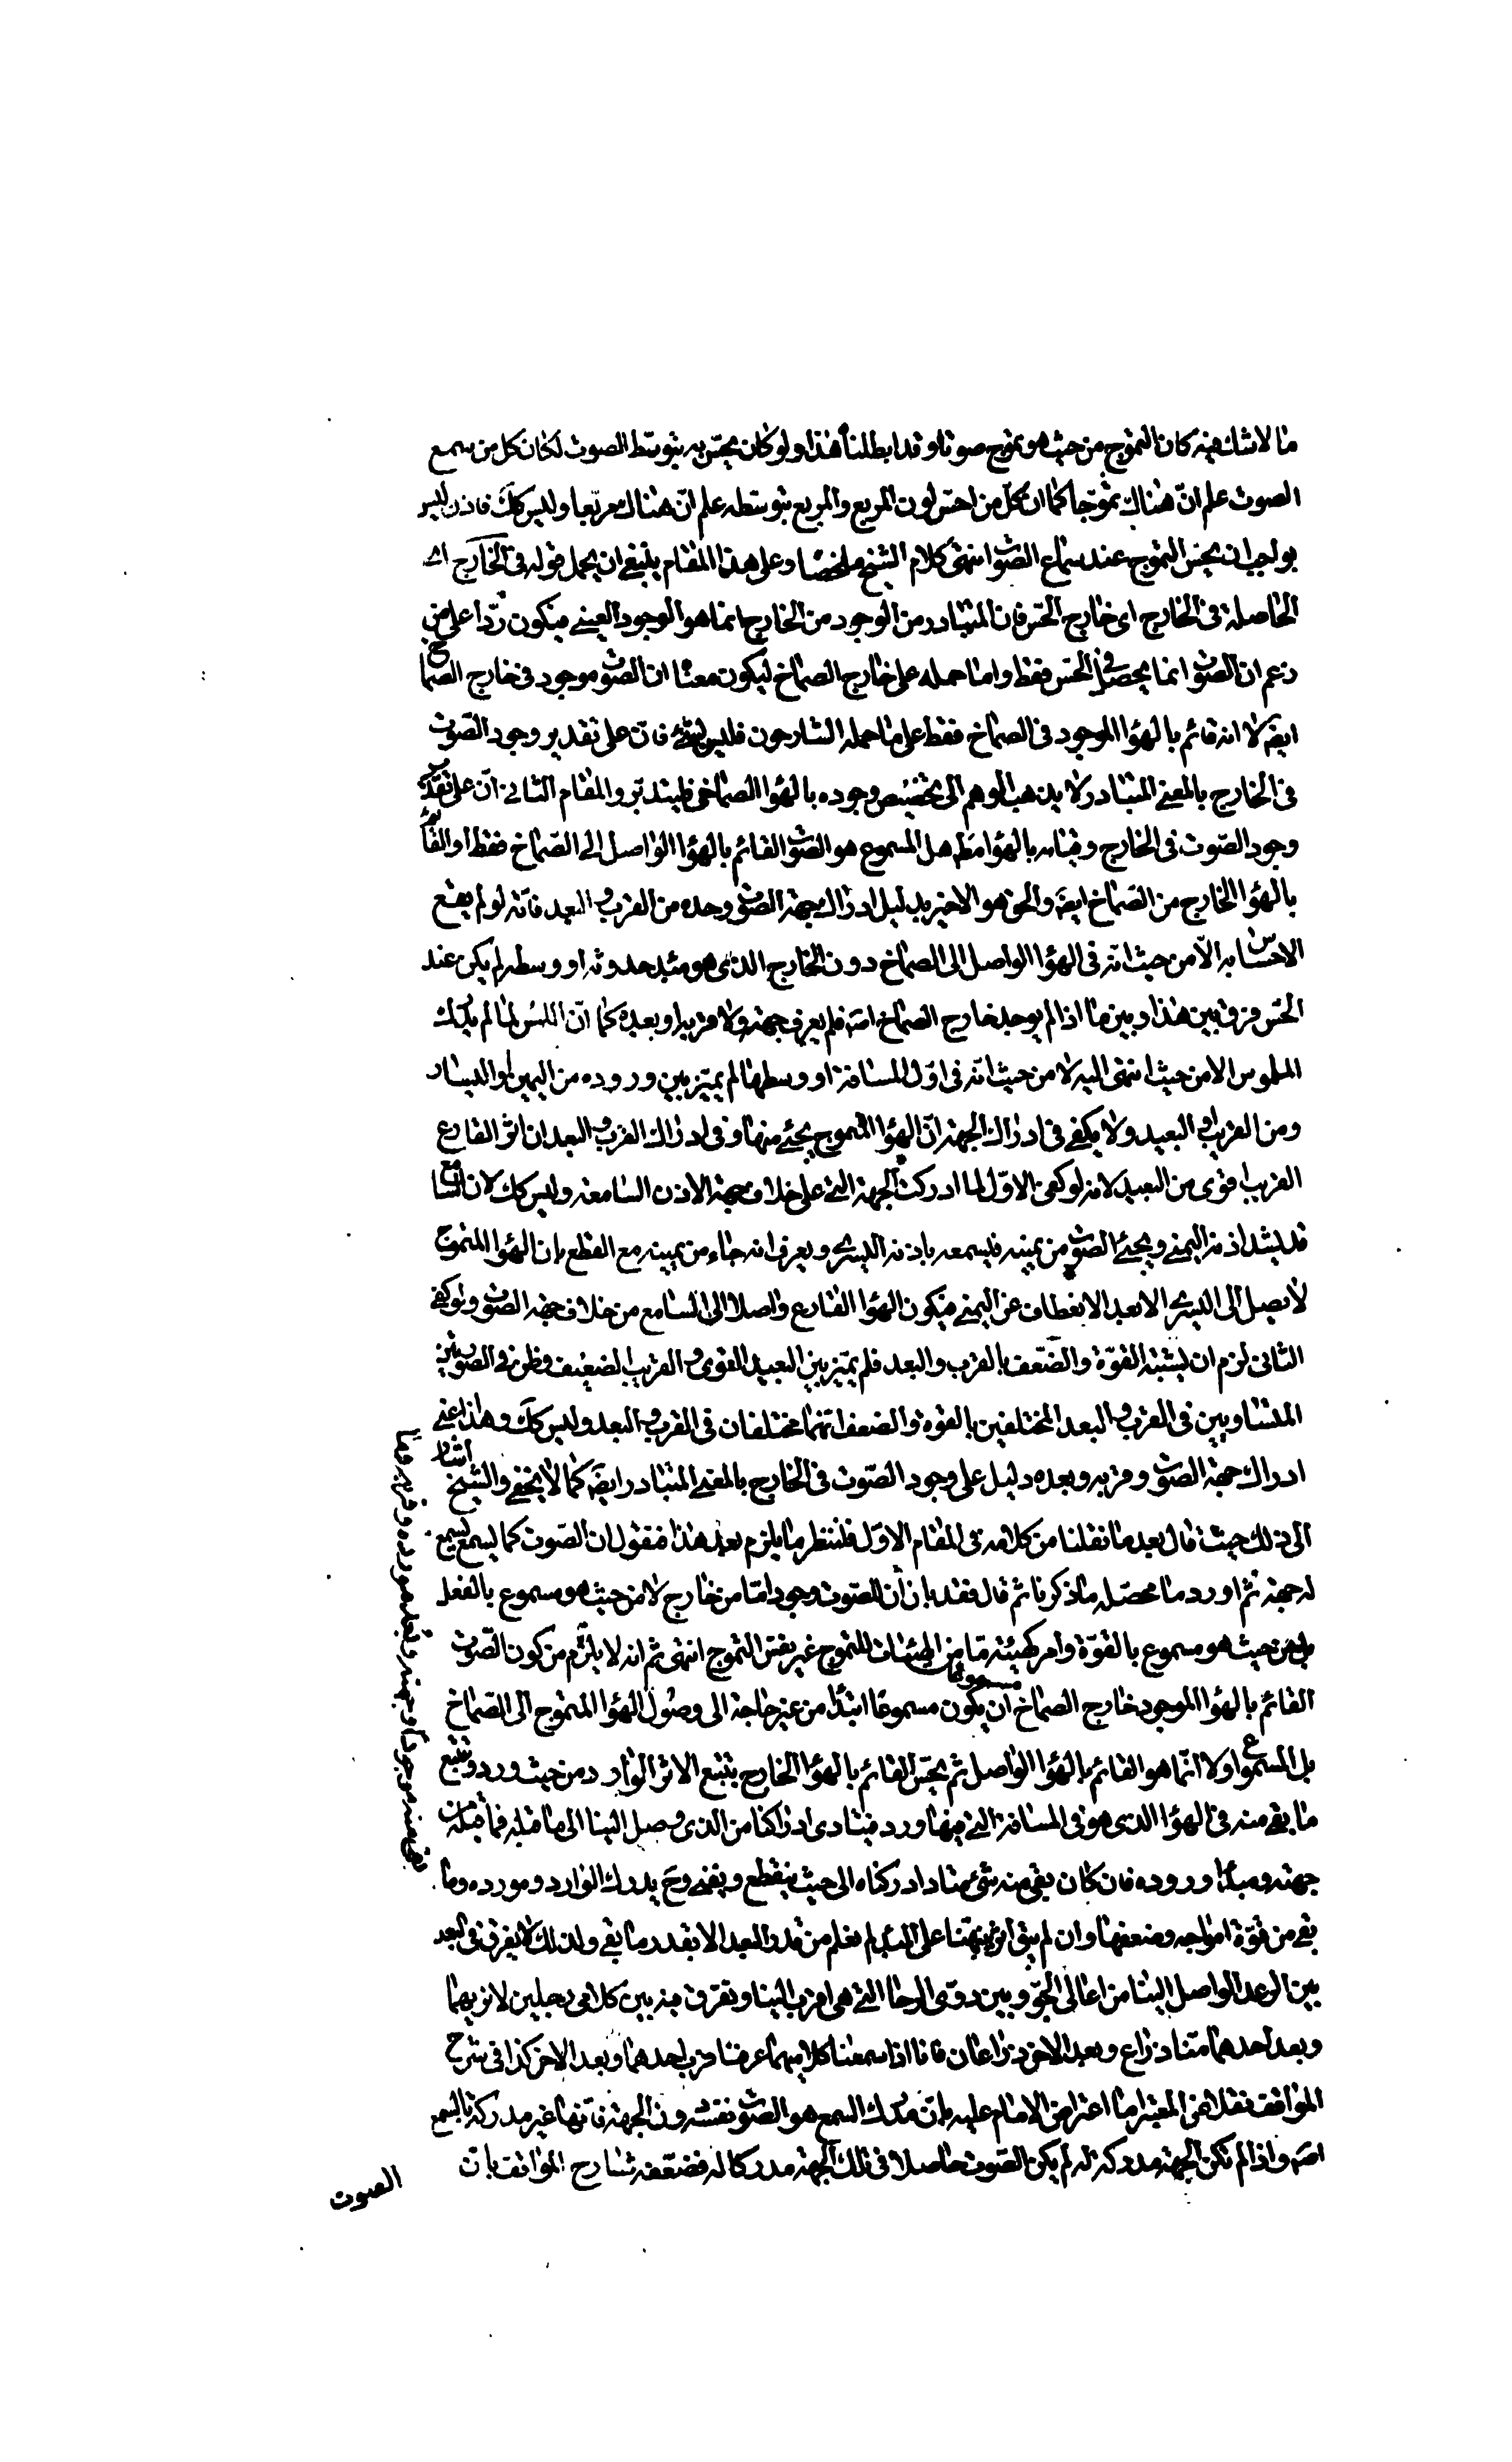 ما لا شك فيه كان التموج من حيث هو تموج صوتا وقد ابطلنا هذا ولو كان يحس به بتوسط الصوت لكان كل من سمع
الصوت علم ان هناك تموجا كما ان كل من احس لون المربع والمربع بتوسطه علم ان هناك مربعا وليس كك فاذن ليس
بواجب ان يحس التموج عند سماع الصوت انتهى كلام الشيخ ملخصا وعلى هذا المقام ينبغي ان يحمل قوله في الخارج اى
الحاصلة في الخارج اى خارج الحس فان المتبادر من الوجود من الخارج انما هو الوجود العيني فيكون ردا على من
زعم ان الصوت انما يحصل في الحس فقط واما حمله على خارج الصماخ ليكون معناه ان الصوت موجود في خارج الصماخ
ايضا لا انه قائم بالهواء الموجود في الصماخ فقط على ما حمله الشارحون فليس بشئ فان على تقدير وجود الصوت
في الخارج بالمعنى المتبادر لا يذهب الوهم الى تخصيص وجوده بالهواء الصماخي فليتدبر والمقام الثاني ان على تقدير
وجود الصوت في الخارج وقيامه بالهواء مط هل المسموع هو الصوت القائم بالهواء الواصل الى الصماخ فقط او القائم
بالهواء الخارج من الصماخ ايضا والحق هو الاخير بدليل ادراك جهة الصوت وحده من القرب والبعد فانه لو لم يقع
الاحساس به الا من حيث انه في الهواء الواصل الى الصماخ دون الخارج الذى هو مبدء حدوثه او وسطه لم يكن عند
الحس فرق بين هذا وبين ما اذا لم يوجد خارج الصماخ اصلا فلم يعرف جهة ولا قربه او بعده كما ان اللمس لما لم يدرك
الملموس الا من حيث انتهى اليه لا من حيث انه في اول المسافة او وسطها لم يميز بين وروده من اليمين او اليسار
ومن القريب او البعيد ولا يكفي في ادراك الجهة ان الهواء المتموج يجئ منها وفي ادراك القرب والبعد ان اثر القارع
القريب اقوى من البعيد لانه لو كفى الاول لما ادركت الجهة التي على خلاف جهة الاذن السامعة وليس كك لان السامع
قد يسد اذنه اليمنى ويجئ الصوت من يمينه فيسمعه باذنه اليسرى ويعرف انه جاء من يمينه مع القطع بان الهواء المتموج
لا يصل الى اليسرى الا بعد الانعطاف عن اليمنى فيكون الهواء القارع واصلا الى السامع من خلاف جهة الصوت ولو كفى
الثاني لزم ان يشتبه القوة والضعف بالقرب والبعد فلم يميز بين البعيد القوى والقريب الضعيف وظن في الصوتين
المتساويين في القرب والبعد المختلفين بالقوة والضعف انهما مختلفان في القرب والبعد وليس كك وهذا اعنى
ادراك جهة الصوت وقربه وبعده دليل على وجود الصوت في الخارج بالمعنى المتبادر ايضا كما لا يخفى والشيخ اشار
الى ذلك حيث قال بعد ما نقلنا من كلامه في المقام الاول فلننظر ما يلزم بعد هذا فنقول ان الصوت كما يسمع يسمع
له جهة ثم اورد ما محصله ما ذكرنا ثم قال فقد بان ان للصوت وجودا ما من خارج لا من حيث هو مسموع بالفعل
بل من حيث هو مسموع بالقوة وامر كهيئة ما من الهيئات للتموج غير نفس التموج انتهى ثم انه لا يلزم من كون الصوت
القائم بالهواء الموجود خارج الصماخ مسموعا ان يكون مسموعا ابتداء من غير حاجة الى وصول الهواء المتموج الى الصماخ
بل المسموع اولا انما هو القائم بالهواء الواصل ثم يحس القائم بالهواء الخارج بتتبع الاثر الوارد من حيث ورد وتتبع
ما بقى منه في الهواء الذى هو في المسافة التي فيها ورد فيتادى ادراكنا من الذى وصل الينا الى ما قبله فما قبله من
جهته ومبدء وروده فان كان بقى منه شئ متادا ادركناه الى حيث ينقطع ويفنى وح يدرك الوارد ومورده وما
بقى من قوة امواجه وضعفها وان لم يبق اثر ينبهنا على المبدء لم نعلم من قدر البعد الا بقدر ما بقى ولذلك لا يفرق في البعد
بين الرعد الواصل الينا من اعالى الجو وبين دوى الرحا التي هى اقرب الينا ونفرق فيه بين كلامى رجلين لا نريهما
وبعد احدهما منا ذراع وبعد الاخر ذراعان فانا اذا سمعنا كلامهما عرفنا قرب احدهما وبعد الاخر كذا في شرح
المواقف نقلا عن المعتبر اما اعتراض الامام عليه بان مدرك السمع هو الصوت نفسه دون الجهة فانها غير مدركة بالسمع
اصلا واذا لم تكن الجهة مدركة له لم يكن الصوت حاصلا في تلك الجهة مدركا له فضعفه شارح المواقف بان
الصوت